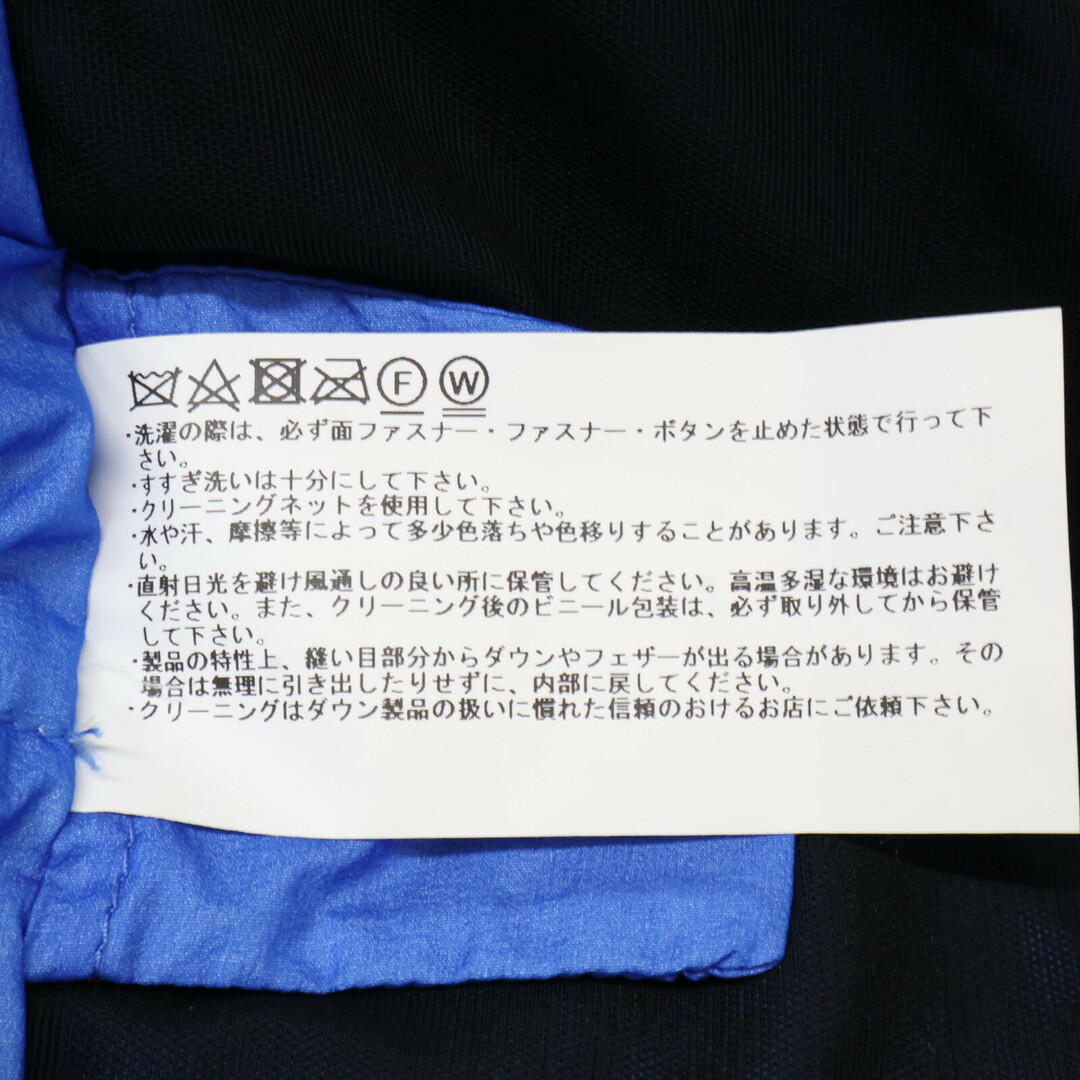 F W
・洗濯の際は、必ず面ファスナー・ファスナー・ボタンを止めた状態で行って下
さい。
・すすぎ洗いは十分にして下さい。
・クリーニングネットを使用して下さい。
・水や汗、摩擦等によって多少色落ちや色移りすることがあります。ご注意下さ
い。
・直射日光を避け風通しの良い所に保管してください。高温多湿な環境はお避け
ください。また、クリーニング後のビニール包装は、必ず取り外してから保管
して下さい。
・製品の特性上、縫い目部分からダウンやフェザーが出る場合があります。その
場合は無理に引き出したりせずに、内部に戻してください。
・クリーニングはダウン製品の扱いに慣れた信頼のおけるお店にご依頼下さい。